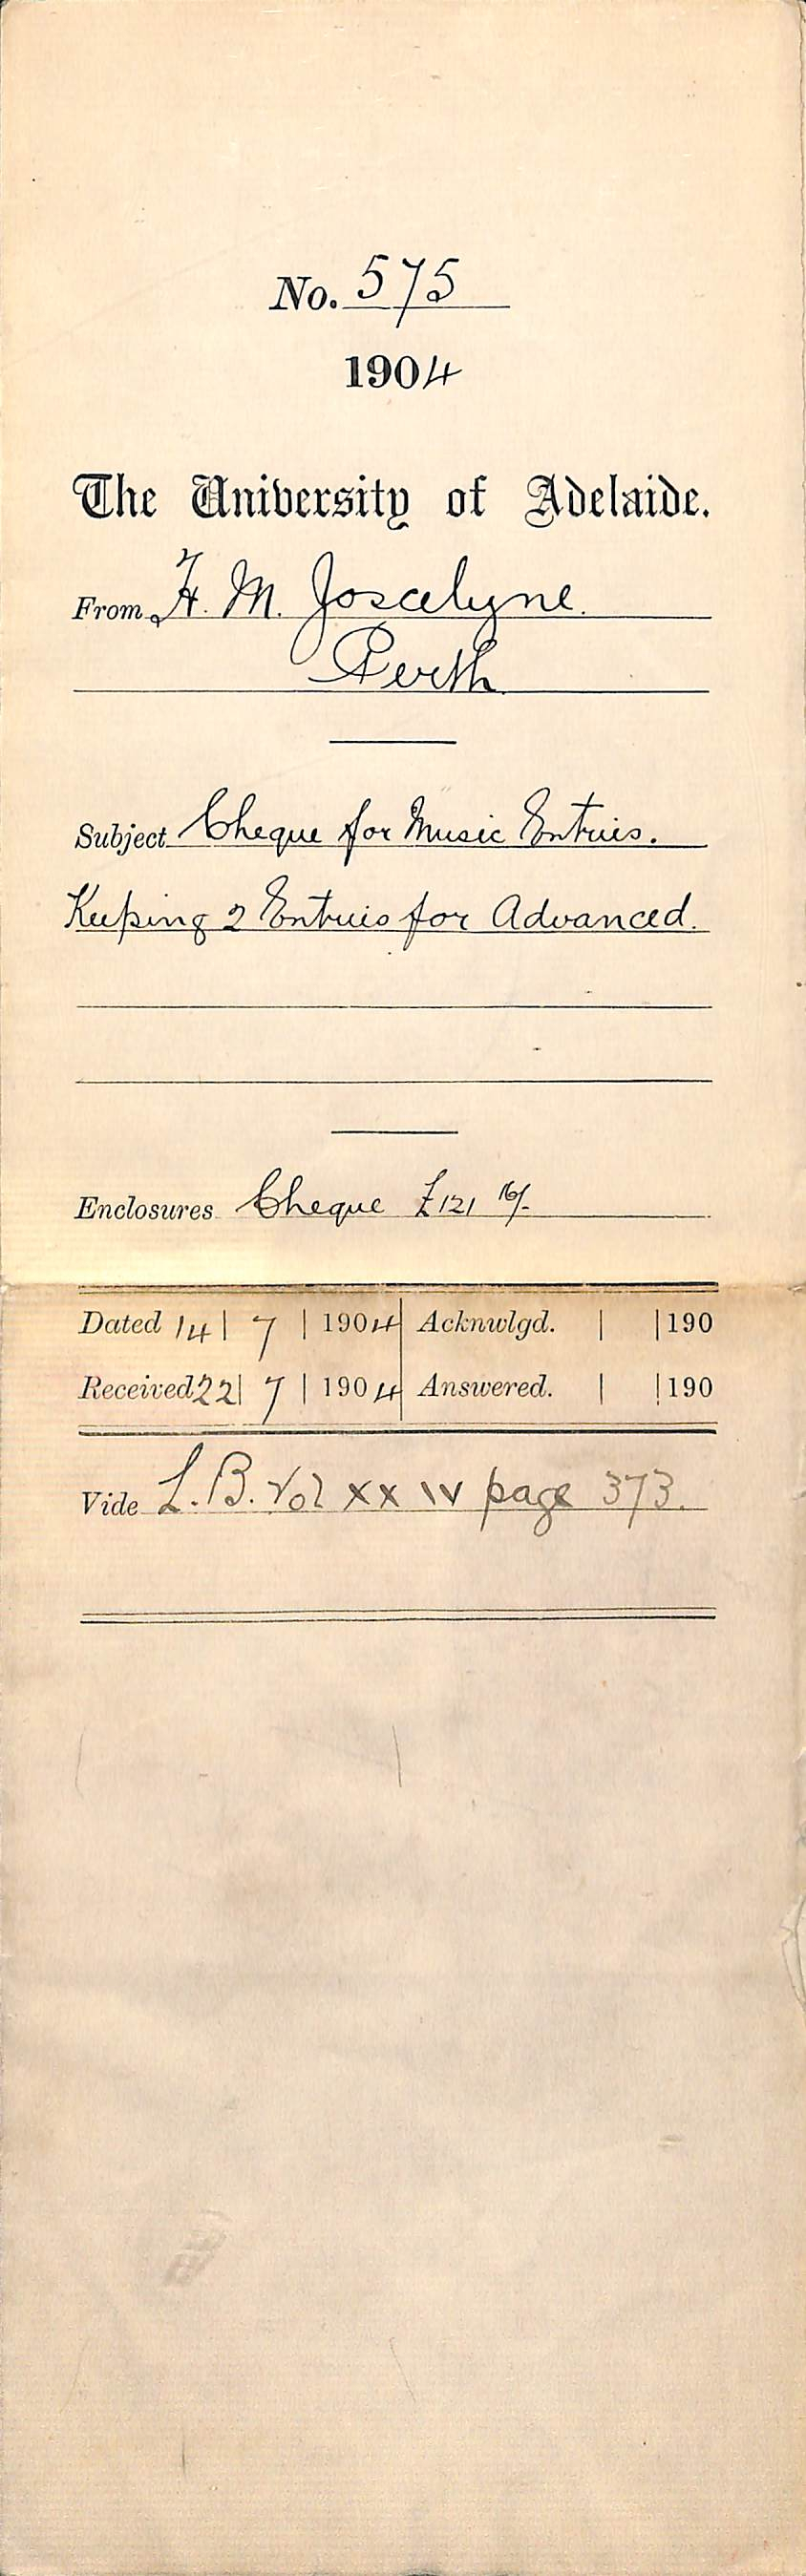 No. 575
1904
The University of Adelaide.
From H. M. Joscelyne.
Perth
Subject Cheque for Music Entries.
Keeping 2 Entries for Advanced.
Enclosures Cheque £121 16/-
Dated 14 | 7 | 1904 | Acknwlgd. | | 190
Received 22 | 7 | 1904 | Answered. | | 190
Vide L.B. Vol XXIV page 373.